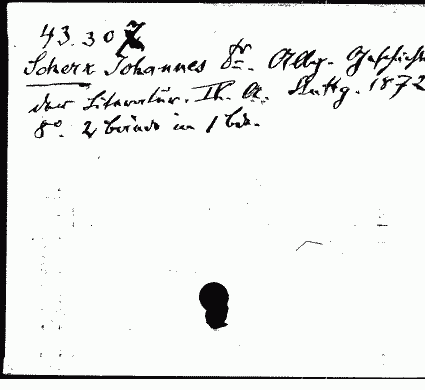 43.307
Scherr Johannes Dr. Allg. Geschichte
der Literatur. IV. A. Stuttg. 1872
8° 2 Bände in 1 Bde.